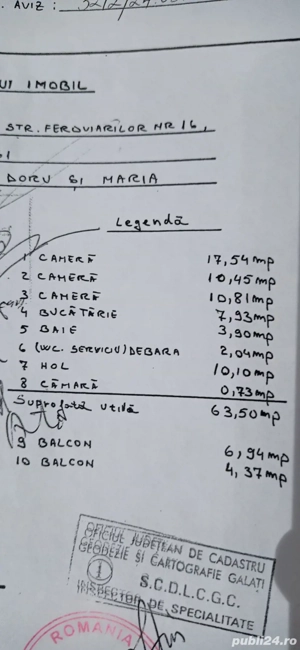 . AVIZ :
UI IMOBIL
STR. FEROVIARILOR NR 16,
DORU ȘI MARIA
Legendă
1 CAMERĂ 17,54mp
2 CAMERĂ 10,45mp
3 CAMERĂ 10,81mp
4 BUCĂTĂRIE 7,93mp
5 BAIE 3,90mp
6 (WC. SERVICIU) DEBARA 2,04mp
7 HOL 10,10mp
8 CĂMARĂ 0,73mp
Suprafată utilă 63,50mp
9 BALCON 6,94mp
10 BALCON 4,37mp
OFICIUL JUDEȚEAN DE CADASTRU
GEODEZIE ȘI CARTOGRAFIE GALAȚI
1 S.C.D.L.C.G.C.
INSPECTOR DE SPECIALITATE
ROMANIA
publi24.ro